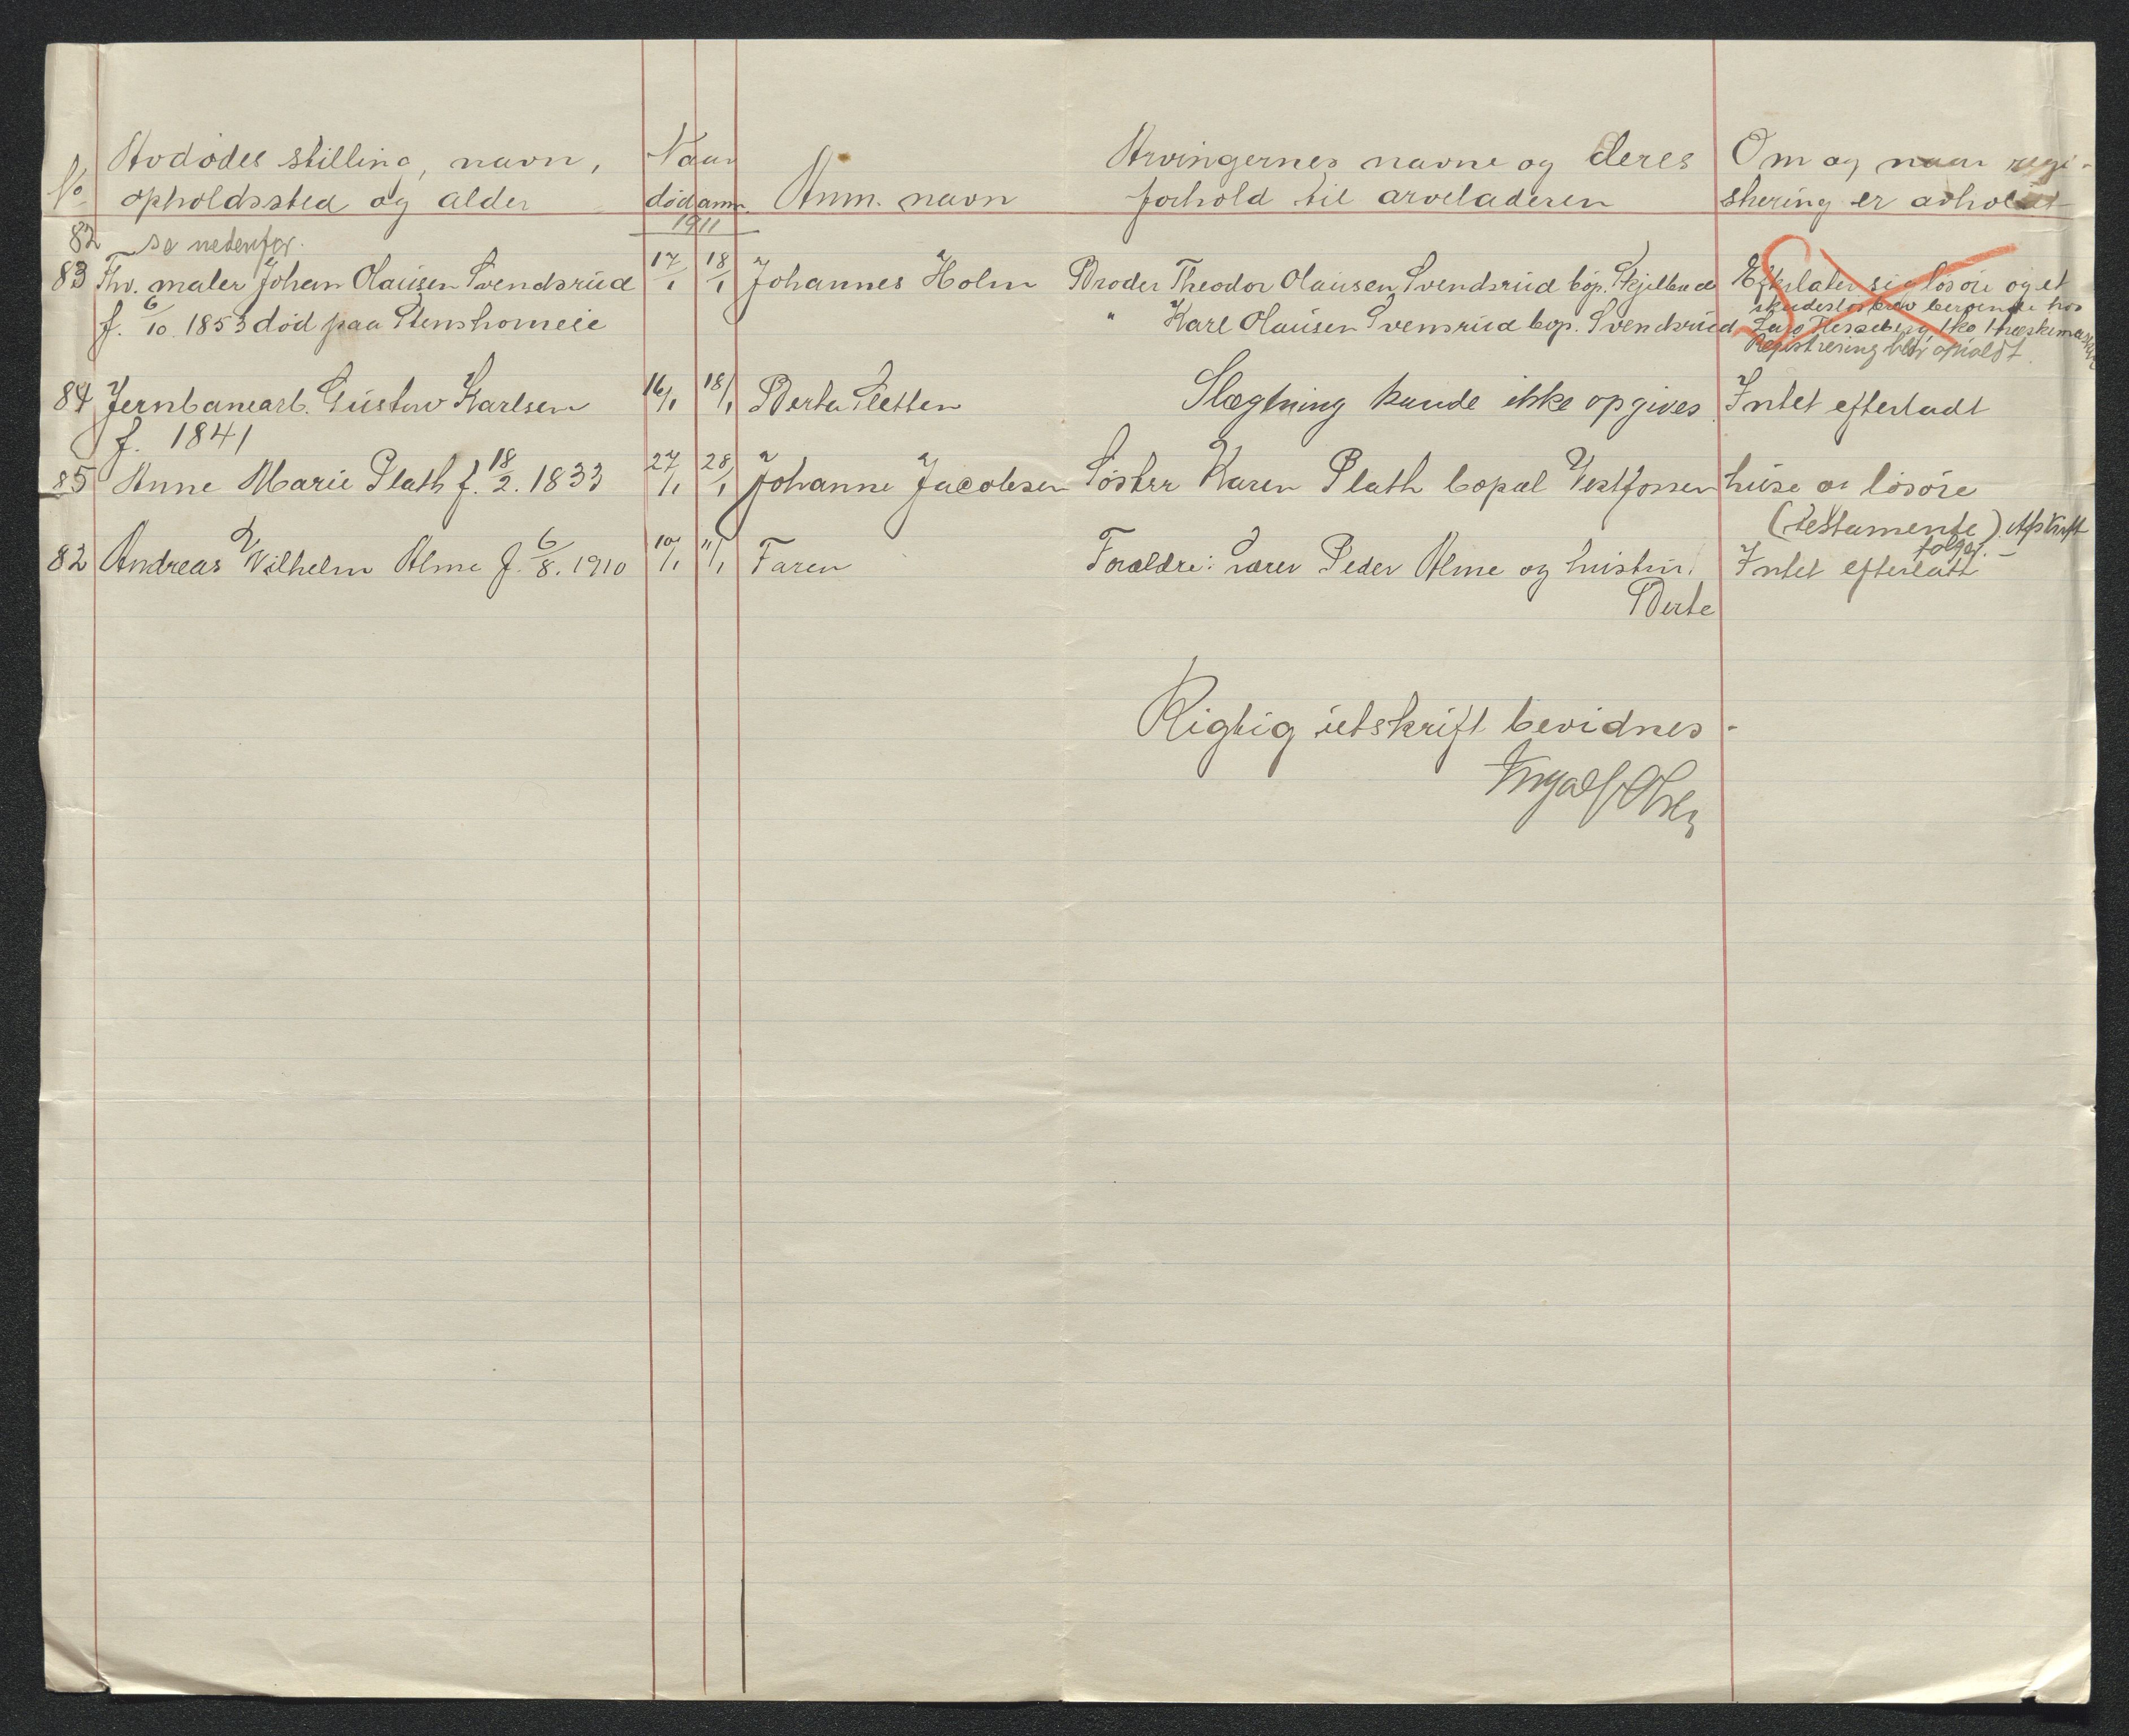 No Avdødes stilling, navn, opholdssted og alder
Naar død anm.
Anm. navn
Arvingernes navne og deres forhold til arveladeren
Om og naar regi-
strering er avholdt
1911
82 se nedenfor.
83 Fhv. maler Johan Olausen Svendsrud 17/1 18/1 Johannes Holm Broder Theodor Olausen Svendsrud bop. Skjelbred Efterlater sig løsøre og et
skadesløsbrev beroende hos
f. 6/10. 1853 død paa Stenshorneie " Karl Olausen Svensrud bop. Svendsrud
Registrering blir avholdt
84 Jernbanearb. Gustav Karlsen 16/1 18/1 Berta Sletten Slægtning kunde ikke opgives Intet efterladt
f. 1841
85 Anne Marie Plath f. 18/2. 1833 27/1 28/1 Johanne Jacobsen Søster Karen Plath bopæl Vestfossen huse og løsøre
(testamente) Afskrift
følger. –
82 Andreas Vilhelm Alme f. 6/8. 1910 10/1 11/1 Faren Forældre: Peder Alme og hustru Intet efterlatt
Berte
Rigtig utskrift bevidnes.
Ingolf Olsen